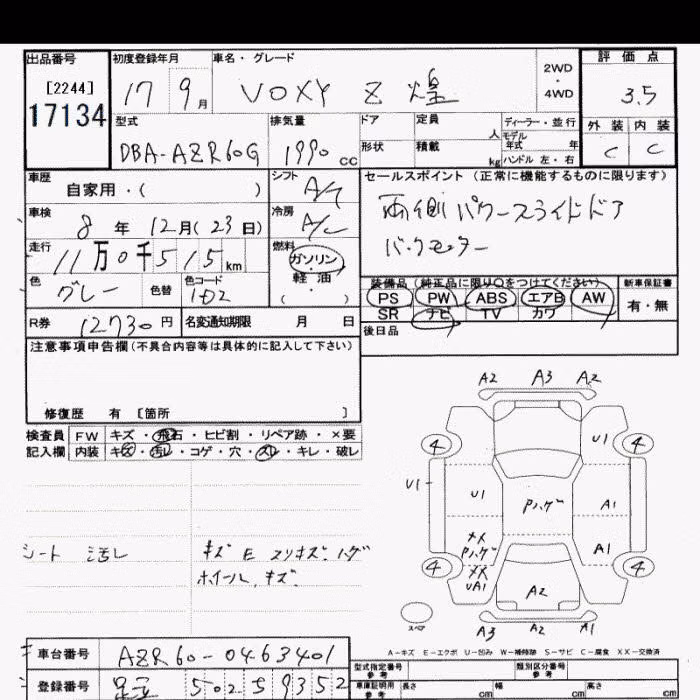 出品番号 初度登録年月 車名・グレード 2WD・4WD 評価点
[2244] 17134 17 9月 VOXY Z 煌 3.5
型式 排気量 ドア 定員 人 ディーラー・並行 外装 内装
DBA-AZR60G 1990 cc 形状 積載 kg モデル年式 年 ハンドル 左・右 C C
車歴 自家用・( ) シフト A/T セールスポイント (正常に機能するものに限ります)
車検 8年 12月(23日) 冷房 A/C 両側パワースライドドア
走行 11万0千515km 燃料 ガソリン・軽油・( ) バックモニター
色 グレー 色替 色コード 1D2 装備品 (純正品に限り○をつけてください) 新車保証書
PS PW ABS エアB AW 有・無
SR ナビ TV カワ
R券 12730円 名変通知期限 月 日 後日品
注意事項申告欄(不具合内容等は具体的に記入して下さい)
修復歴 有 [箇所 ]
検査員 FW キズ・飛石・ヒビ割・リペア跡・×要
記入欄 内装 キズ・汚レ・コゲ・穴・スレ・キレ・破レ
シート 汚レ
キズ E スリキズ ハゲ
ホイール キズ
A2 A3 A2
4 U1 4
U1 U1 Pハゲ A1
メメ Pハゲ A1
4 メメ UA1 4
A2
スペア A3 A2 A1
A-キズ E-エクボ U-凹み W-補修跡 S-サビ C-腐食 XX-交換済
車台番号 AZR60-0463401
型式指定番号 参考 類別区分番号 参考
登録番号 足立 502 5 9352
車庫証明用 参考 長さ cm 幅 cm 高さ cm